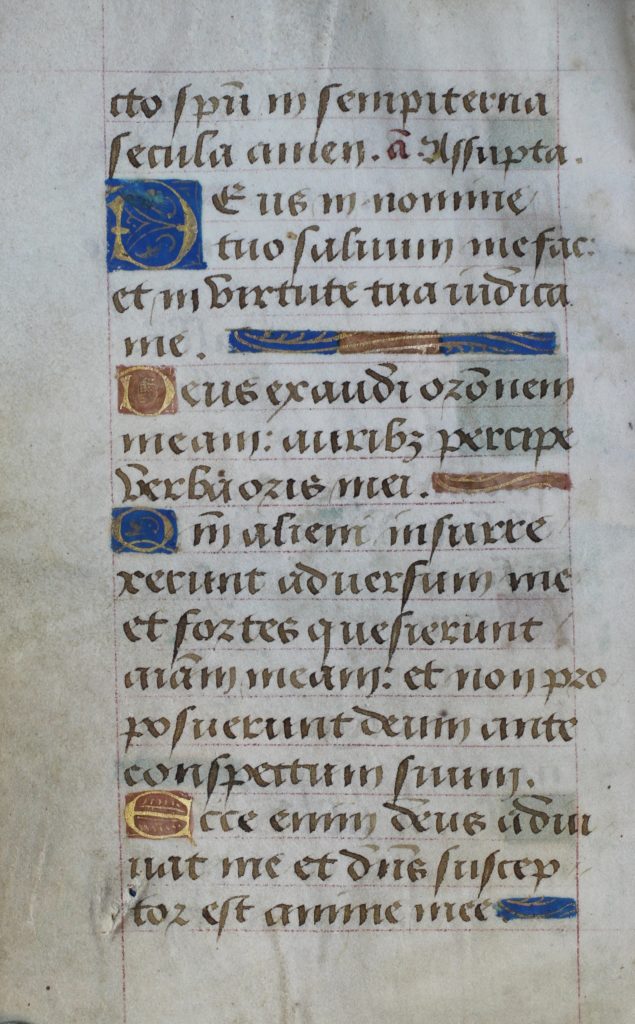 cto spū in sempiterna
secula amen. ā Assupta.
Deus in nomine
tuo saluum me fac:
et in virtute tua iudica
me.
Deus exaudi orōnem
meam: auribꝫ percipe
verba oris mei.
Qm̄ alieni insurre
xerunt aduersum me
et fortes quesierunt
aiām meam: et non pro
posuerunt deum ante
conspectum suum.
Ecce enim deus adiu
uat me et dn̄s suscep
tor est anime mee